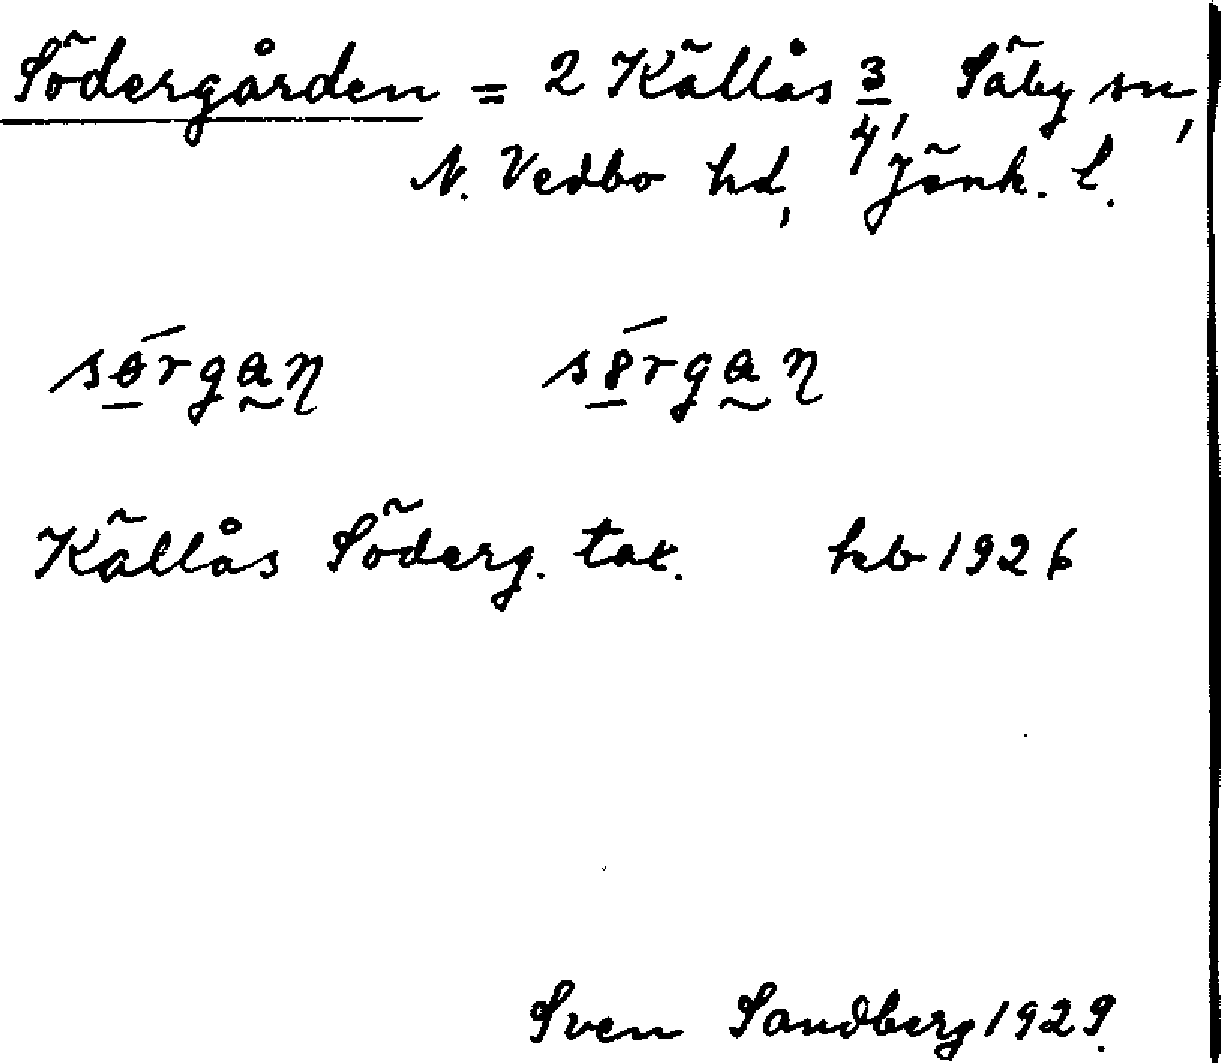 Södergården = 2 Källås 3/4, Säby sn,
N. Vedbo hd, Jönk. l.
sǿrgaɳ s8́rgaɳ
Källås Söderg. tax. hb 1926
Sven Sandberg 1929.